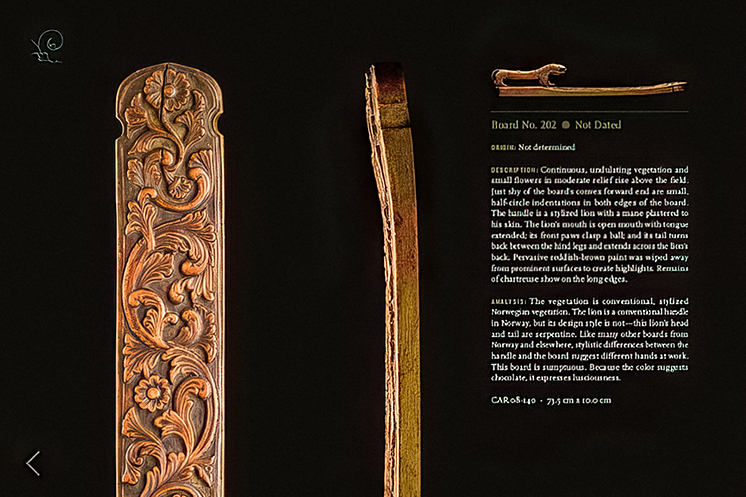 Board No. 202 ● Not Dated
ORIGIN: Not determined
DESCRIPTION: Continuous, undulating vegetation and
small flowers in moderate relief rise above the field.
Just shy of the board's convex forward end are small,
half-circle indentations in both edges of the board.
The handle is a stylized lion with a mane plastered to
his skin. The lion's mouth is open mouth with tongue
extended; its front paws clasp a ball; and its tail turns
back between the hind legs and extends across the lion's
back. Pervasive reddish-brown paint was wiped away
from prominent surfaces to create highlights. Remains
of chartreuse show on the long edges.
ANALYSIS: The vegetation is conventional, stylized
Norwegian vegetation. The lion is a conventional handle
in Norway, but its design style is not—this lion's head
and tail are serpentine. Like many other boards from
Norway and elsewhere, stylistic differences between the
handle and the board suggest different hands at work.
This board is sumptuous. Because the color suggests
chocolate, it expresses lusciousness.
CAR08-140 · 73.5 cm x 10.0 cm